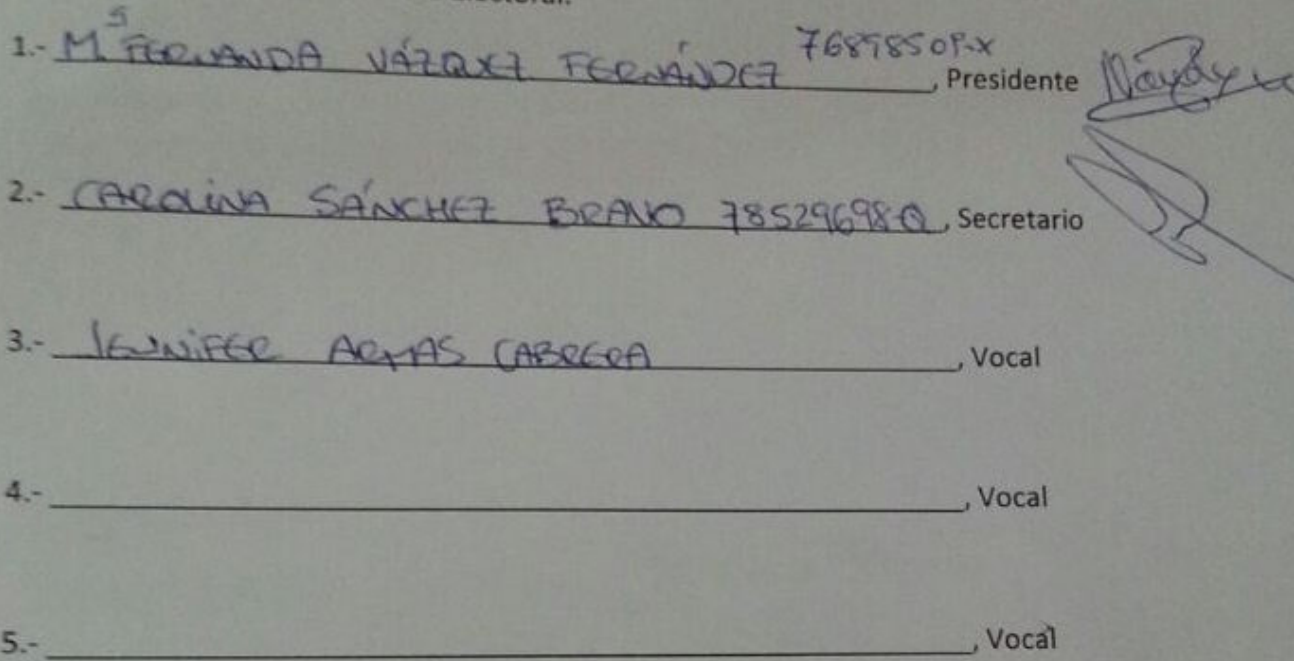 1.- Mª FERNANDA VÁZQUEZ FERNÁNDEZ, Presidente
2.- CAROLINA SÁNCHEZ BRAVO 78529698-Q, Secretario
3.- JENNIFER ARMAS CABRERA, Vocal
4.- , Vocal
5.- , Vocal